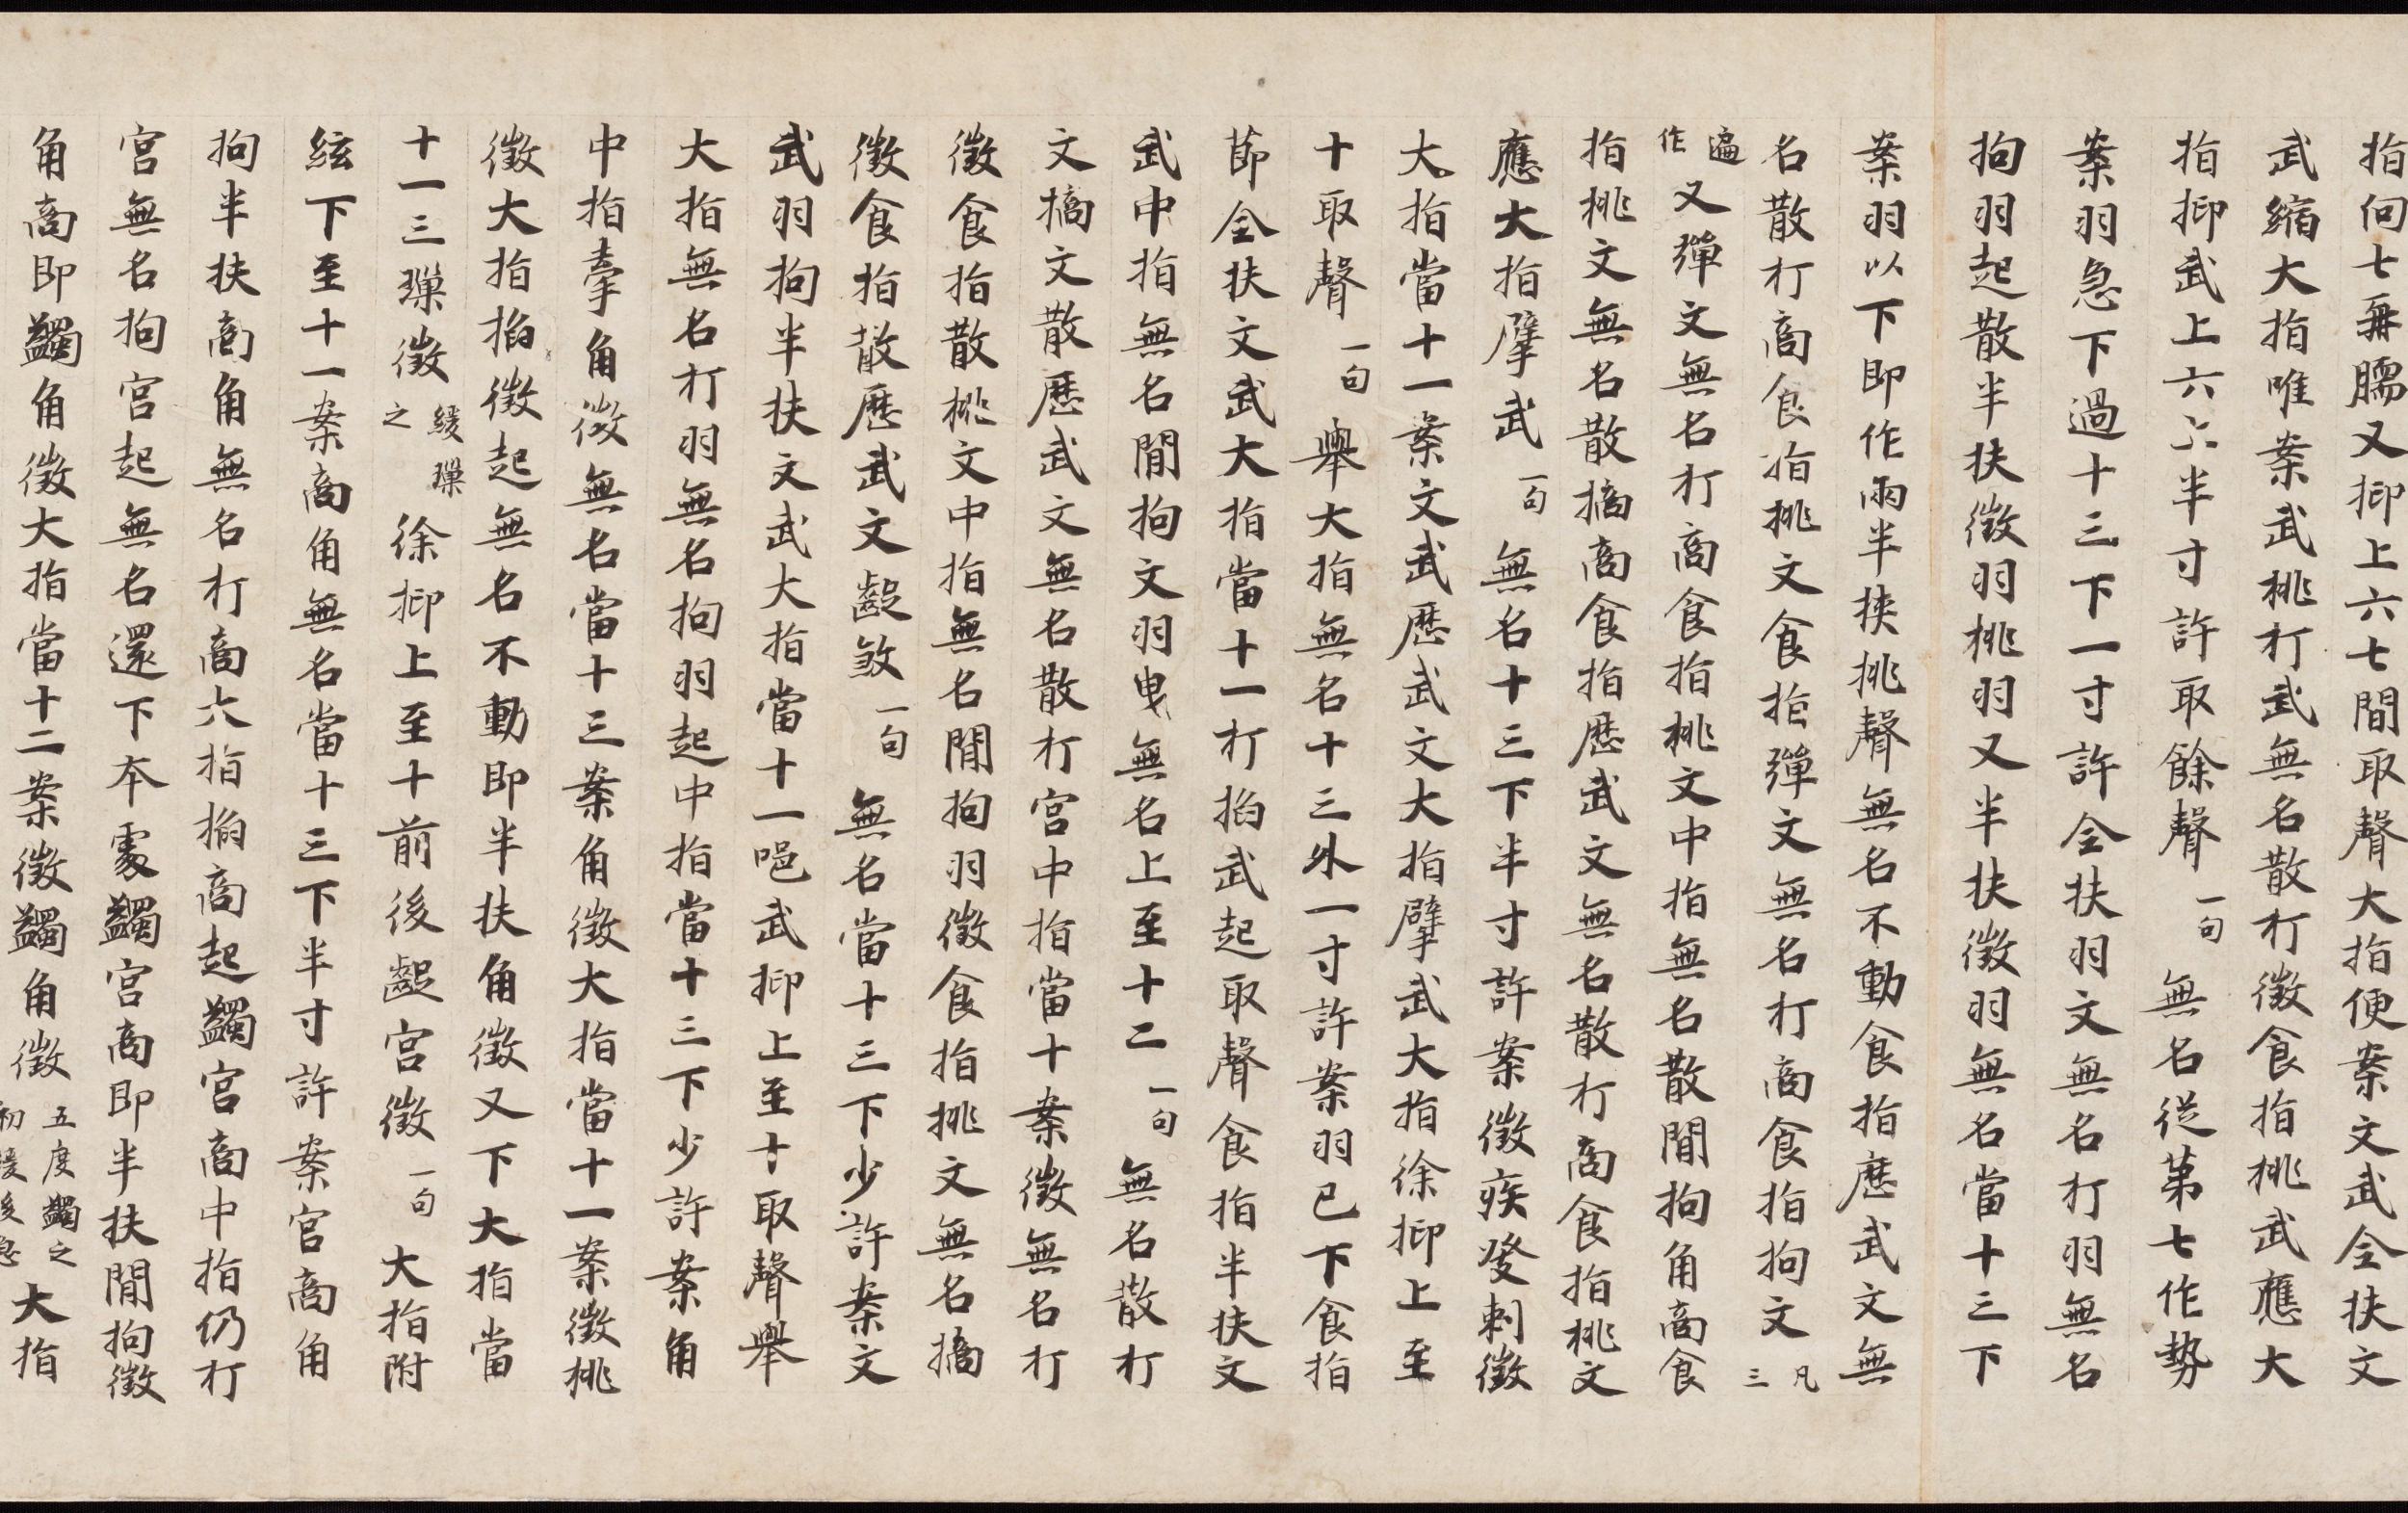 指向七羃臑又抑上六七間取聲大指便案文武全扶文
武縮大指唯案武桃打武無名散打徵食指挑武應大
指抑武上六六六半寸許取餘聲一句無名從第七作勢
案羽急下過十三下一寸許全扶羽文無名打羽無名
拘羽起散半扶徵羽桃羽又半扶徵羽無名當十三下
案羽以下即作兩半挾挑聲無名不動食指歷武文無
名散打商食指挑文食指彈文無名打商食指拘文凡三
遍作又彈文無名打商食指挑文中指無名散間拘角商食
指桃文無名散擿商食指歷武文無名散打商食指挑文
應大指擘武一句無名十三下半寸許案徵疾發刺徵
大指當十一案文武歷武文大指擘武大指徐抑上至
十取聲一句舉大指無名十三外一寸許案羽已下食指
節全扶文武大指當十一打掐武起取聲食指半扶文
武中指無名間拘文羽曳無名上至十二一句無名散打
文擿文散歷武文無名散打宮中指當十案徵無名打
徵食指散桃文中指無名間拘羽徵食指挑文無名擿
徵食指散歷武文齪敚一句無名當十三下少許案文
武羽拘半扶文武大指當十一唈武抑上至十取聲舉
大指無名打羽無名拘羽起中指當十三下少許案角
中指牽角徵無名當十三案角徵大指當十一案徵桃
徵大指掐徵起無名不動即半扶角徵又下大指當
十一三璅徵緩璅之徐抑上至十前後齪宮徵一句大指附
絃下至十一案商角無名當十三下半寸許案宮商角
拘半扶商角無名打商大指掐商起蠲宮商中指仍打
宮無名拘宮起無名還下本處蠲宮商即半扶間拘徵
角商即蠲角徵大指當十二案徵蠲角徵五度蠲之初緩後急大指